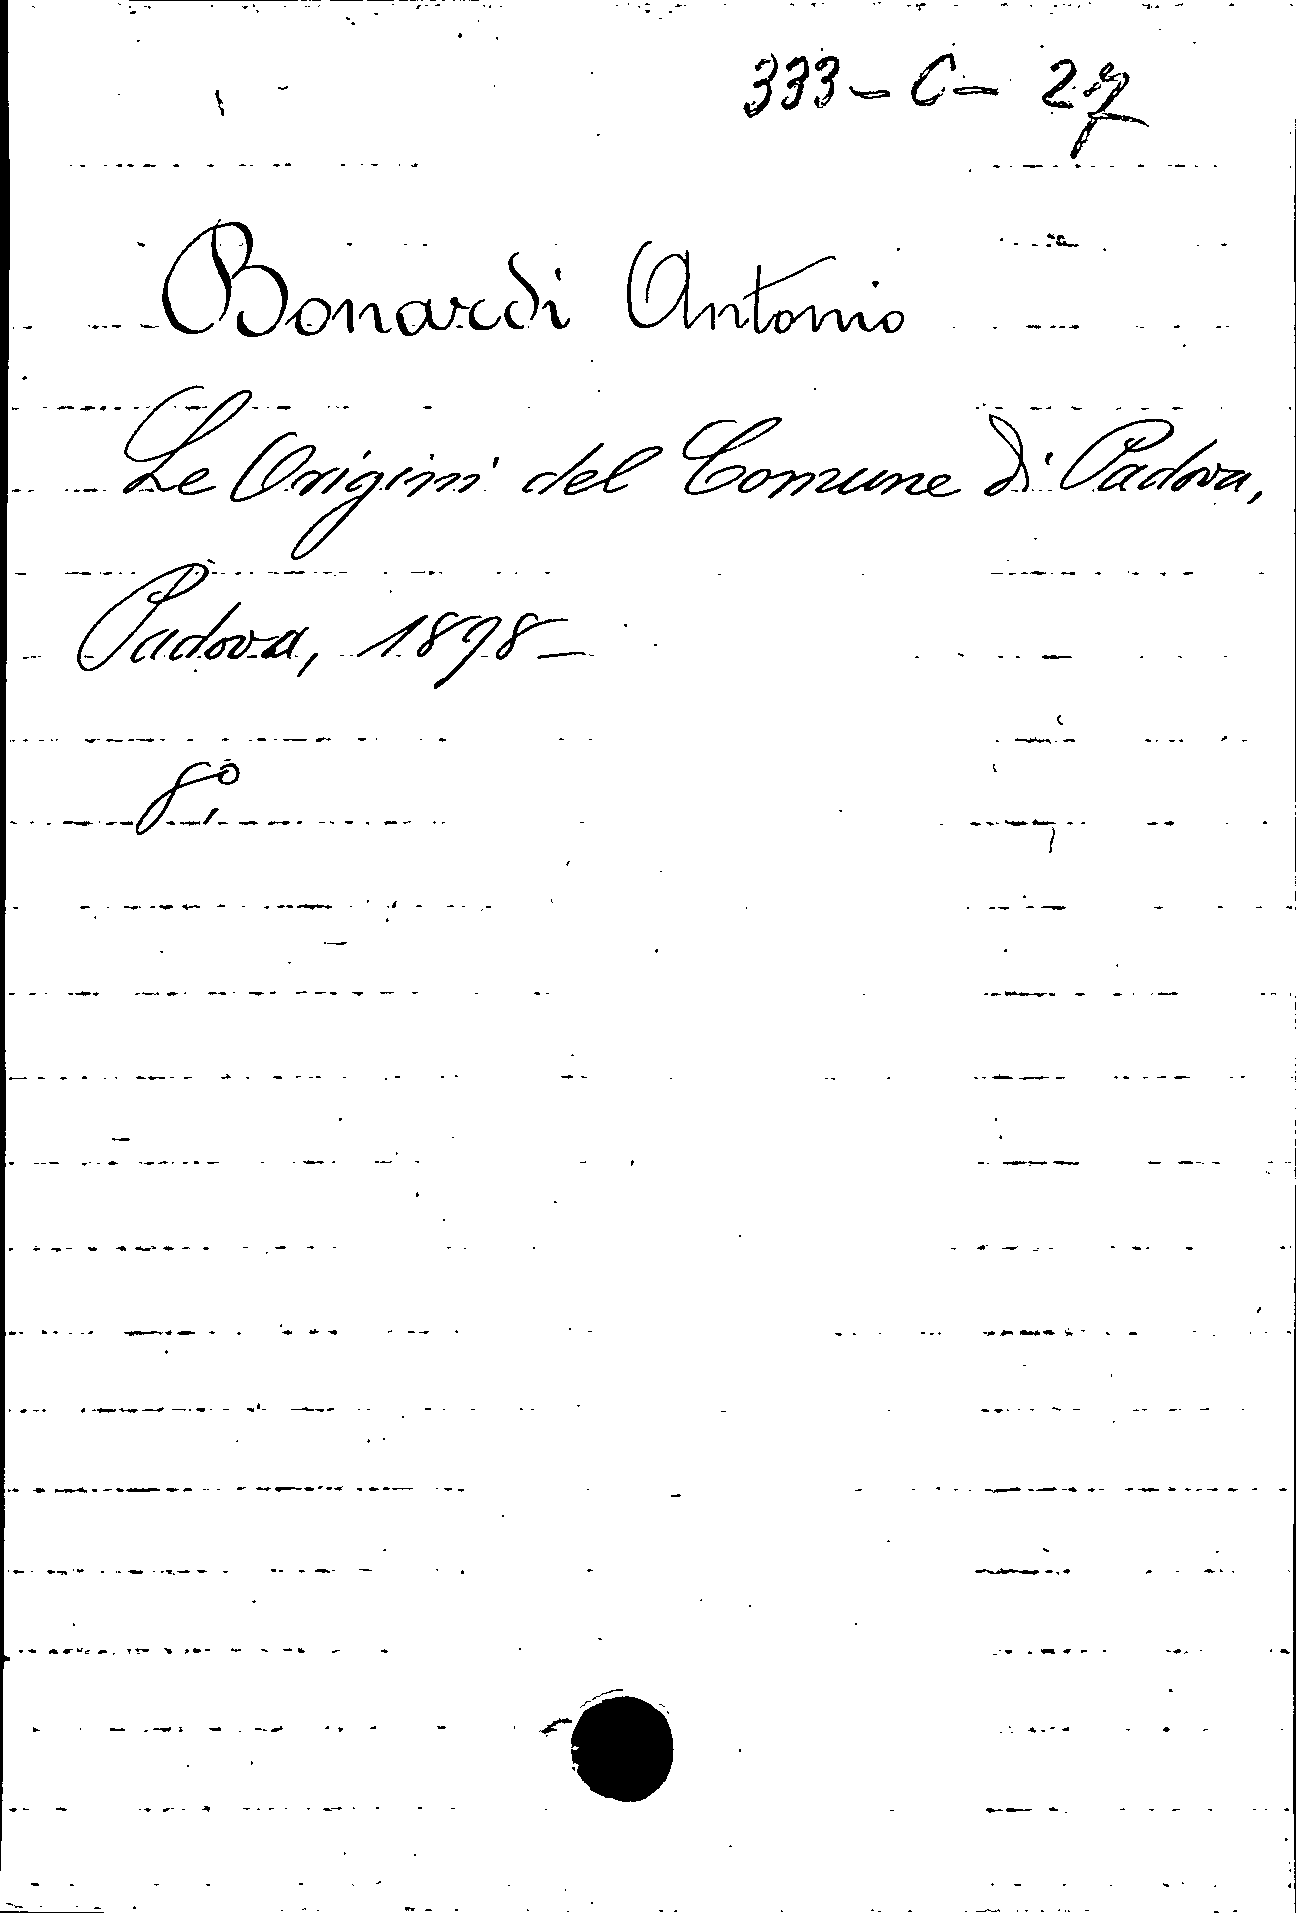 333 - C - 27
Bonardi Antonio
Le Origini del Comune di Padova,
Padova, 1898 -
8°.